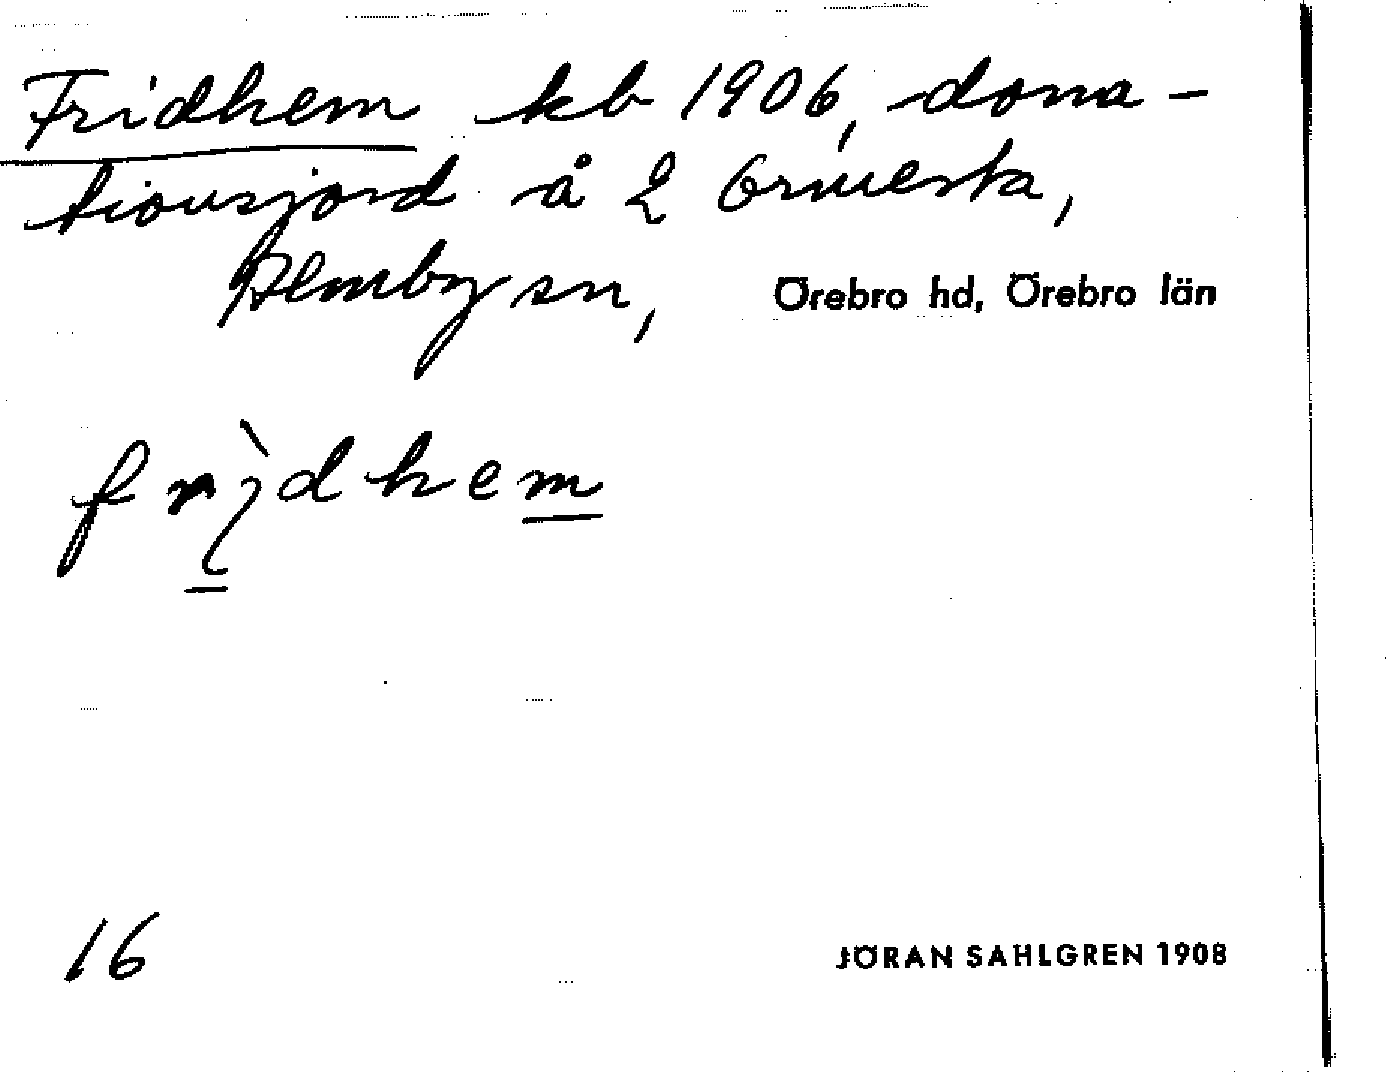 Fridhem kb 1906, dona-
tionsjord å L Ormesta,
Almby sn, Örebro hd, Örebro län
fri̠dhem̠
16
JÖRAN SAHLGREN 1908